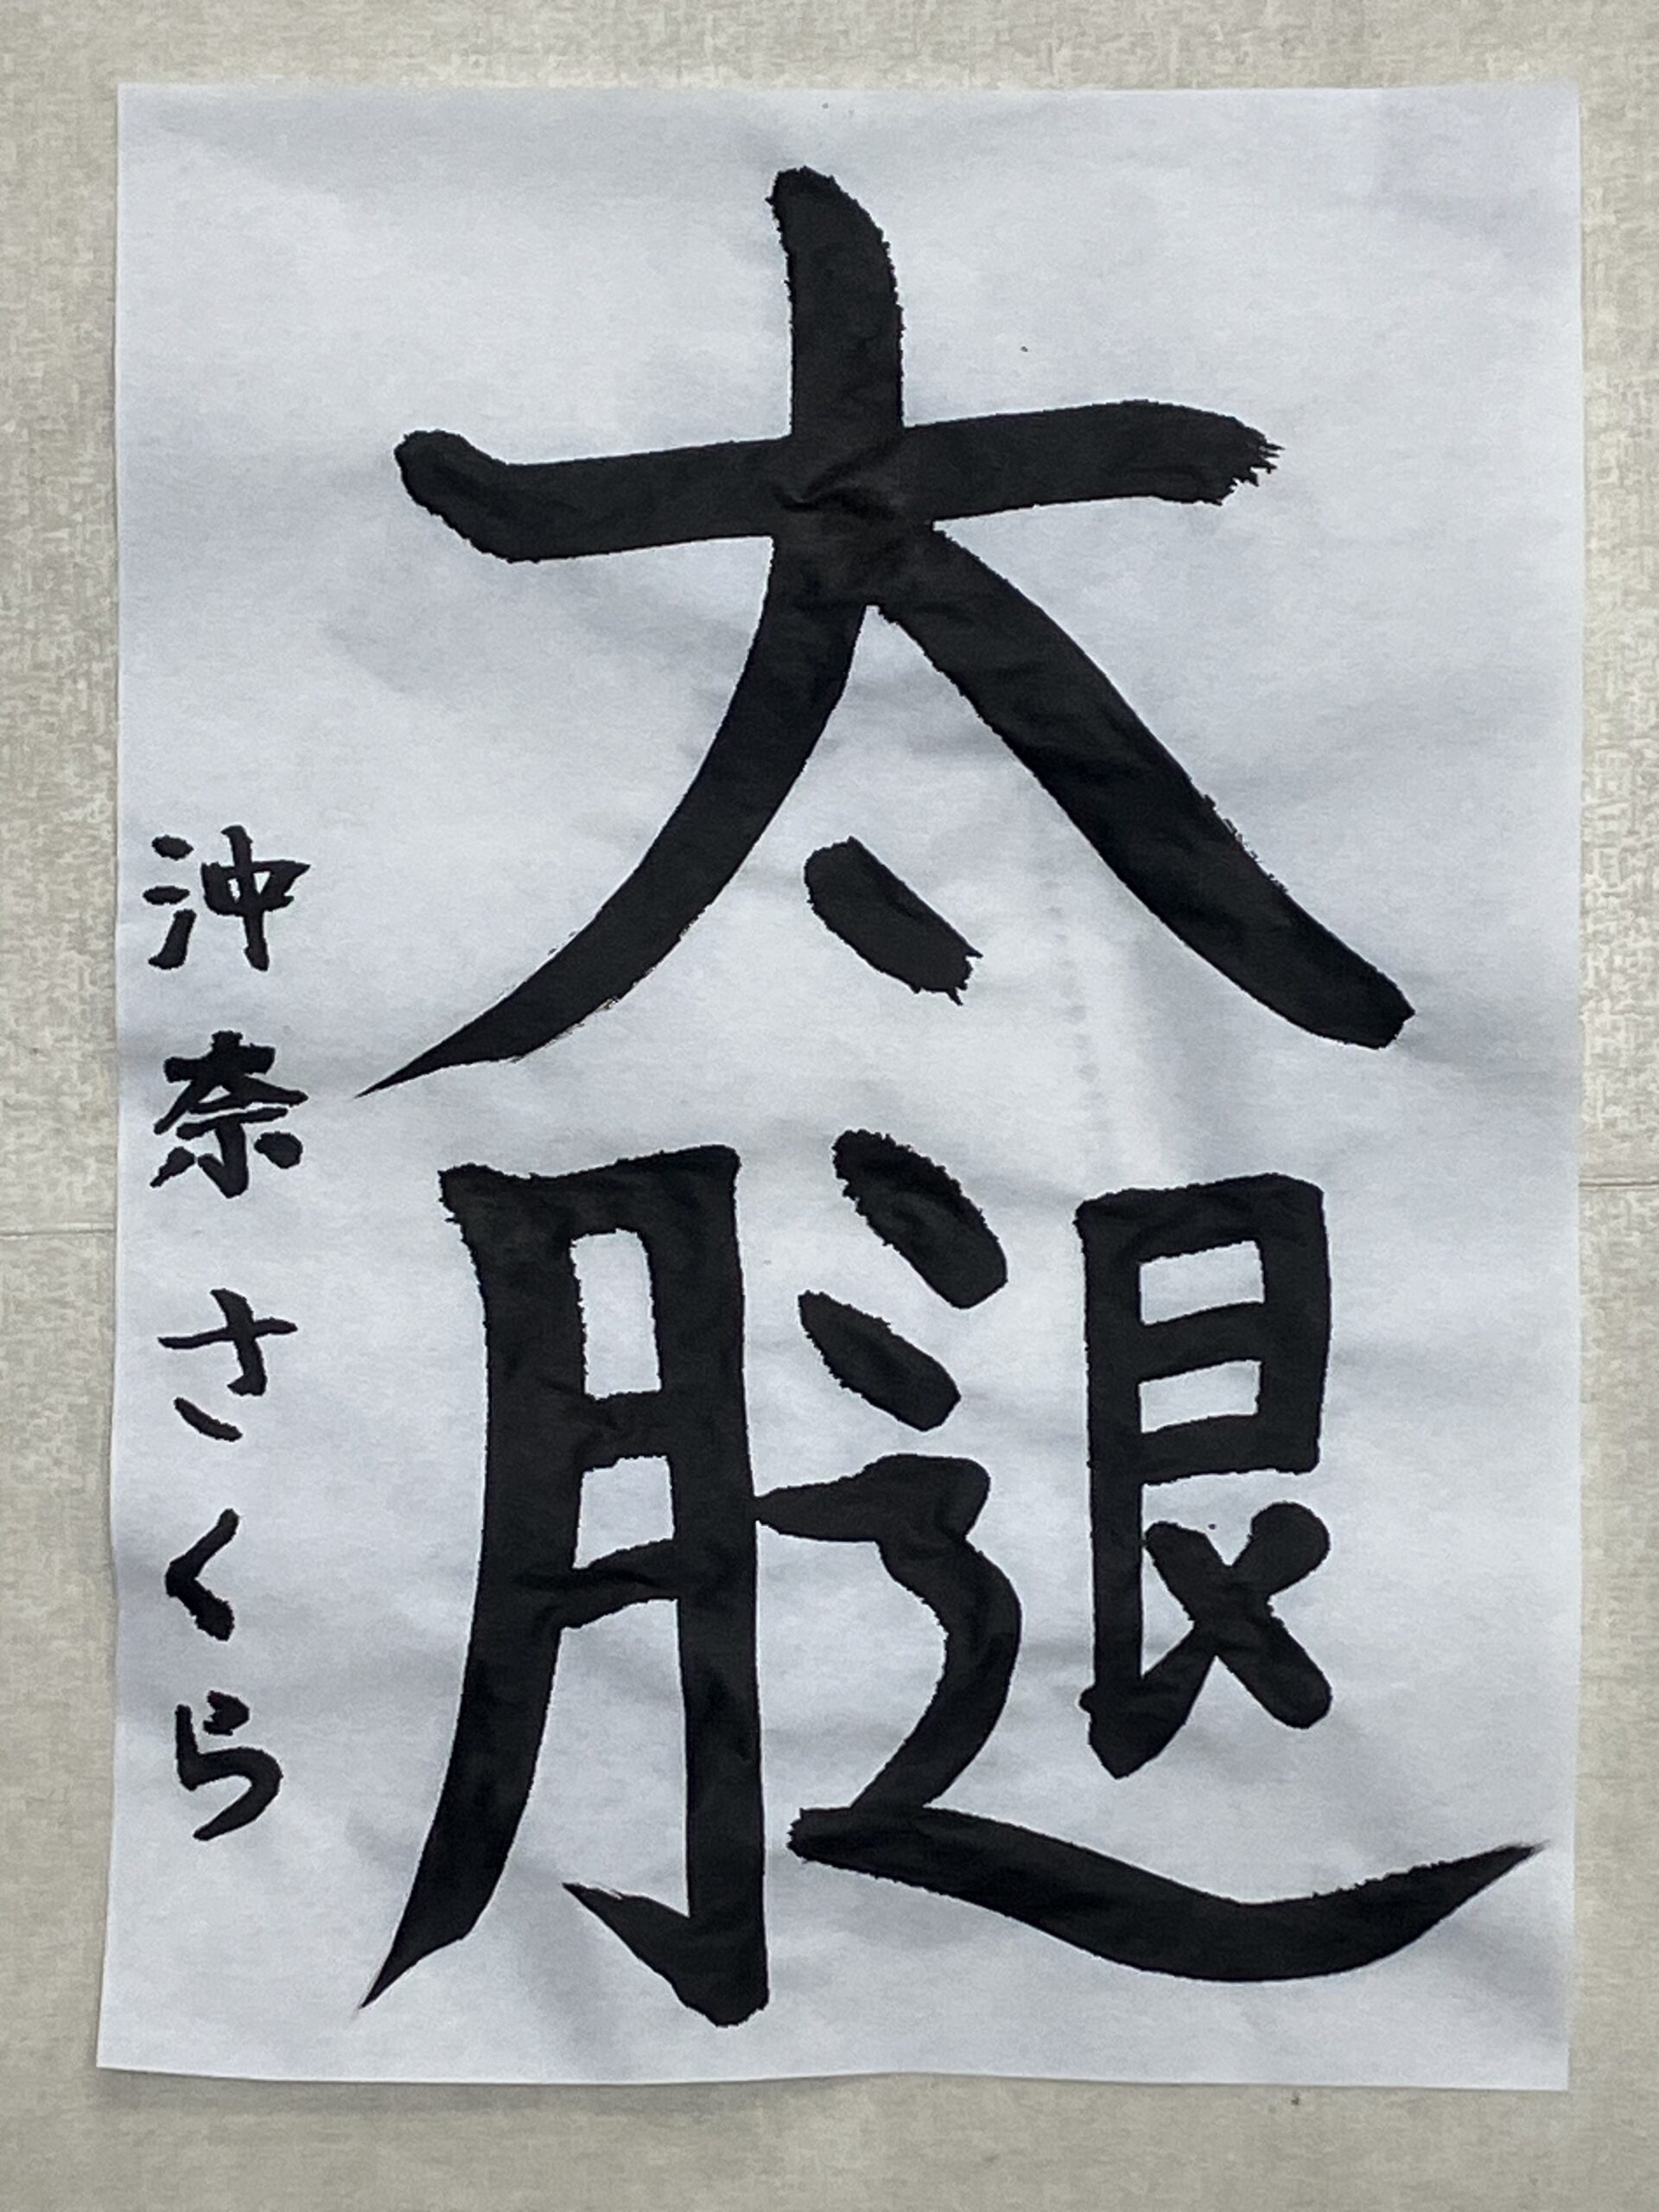 太腿
沖奈さくら